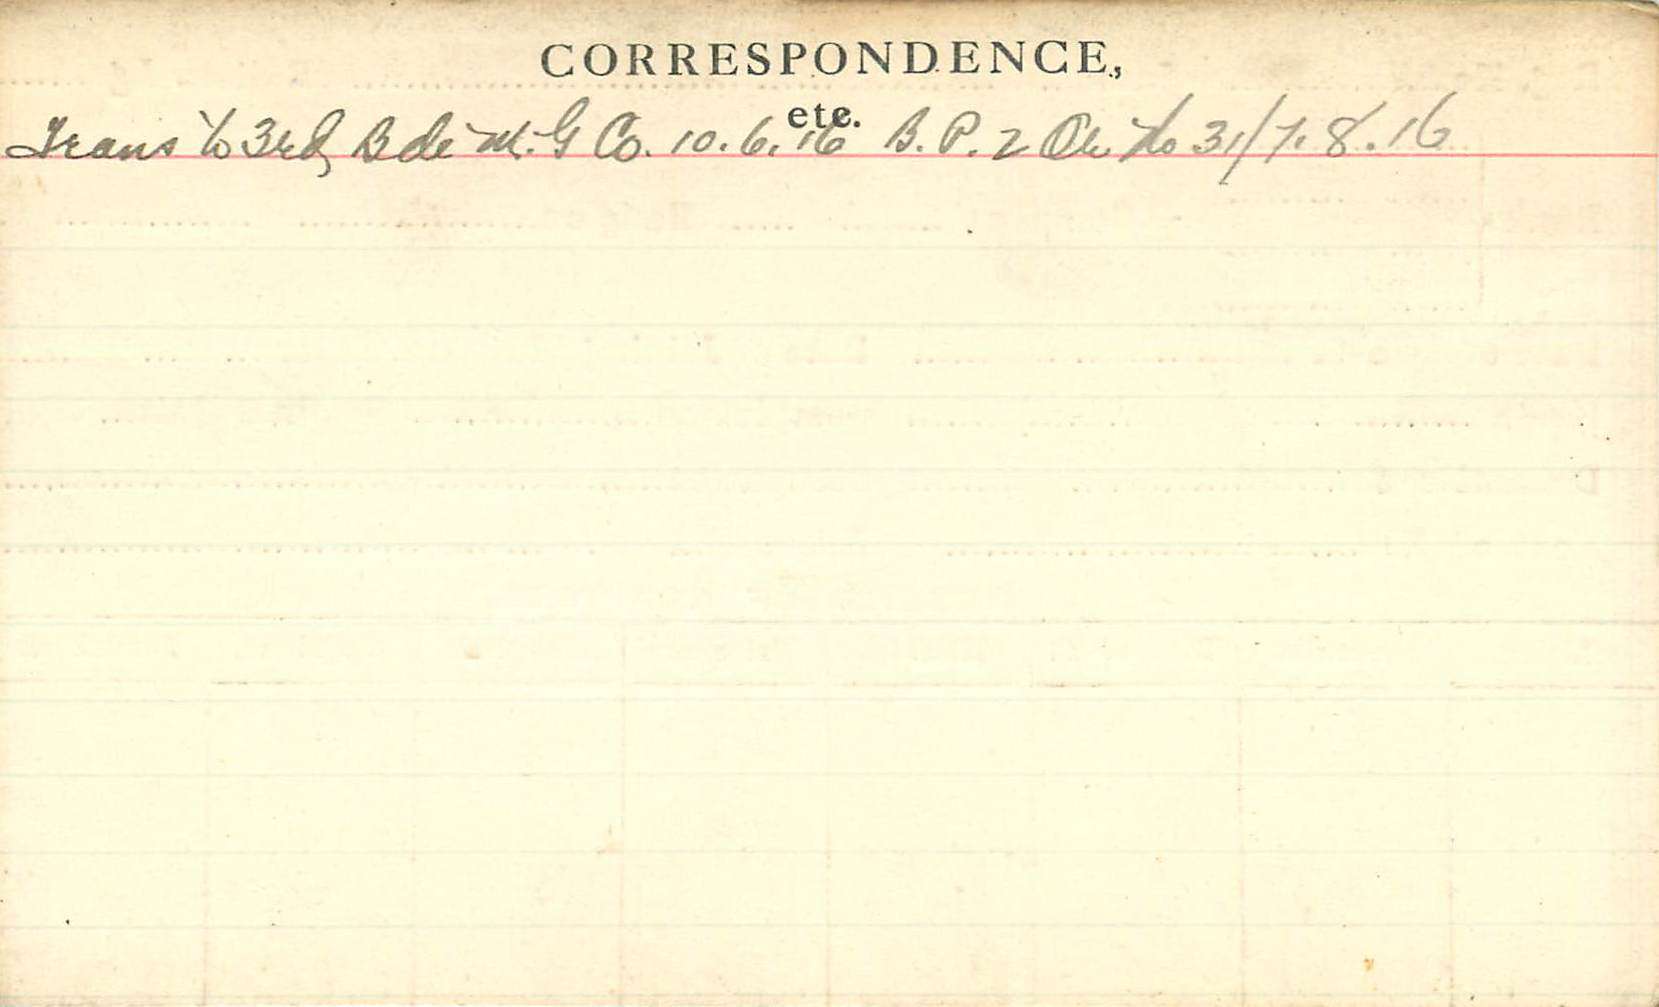 CORRESPONDENCE,
etc.
Trans to 3rd Bde M.G Co. 10.6.16 B.P. 2 Ch No 31/7.8.16